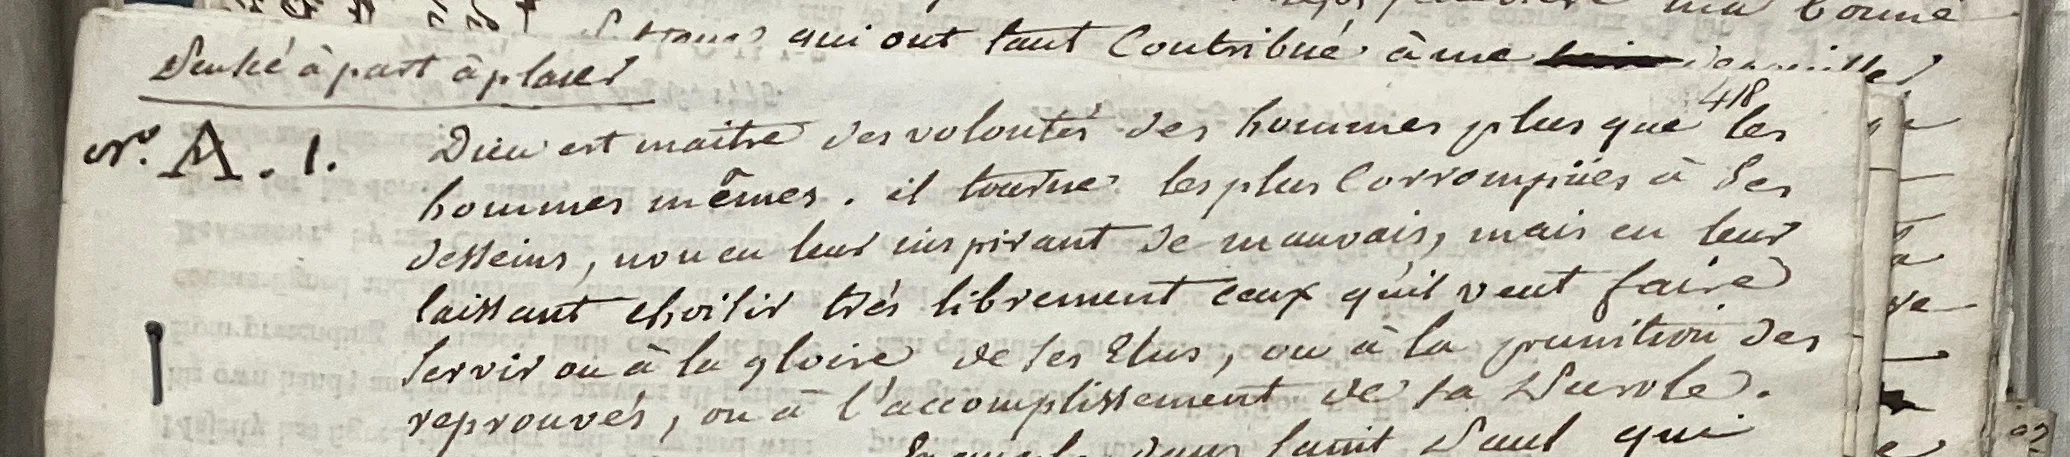 ma bonne
qui ont tant Contribué à me
Pensée à part à placer
418
n.° A. 1. Dieu est maitre des volontés des hommes plus que les
hommes mêmes. il tourne les plus Corrompües à Ses
desseins, non en leur inspirant de mauvais, mais en leur
laissant choisir trés librement ceux qu'il veut faire
Servir ou à la gloire de ses Elus, ou à la punition des
reprouvés, ou à l'accomplissement de sa Parole.
Exemple dans Saint Paul qui